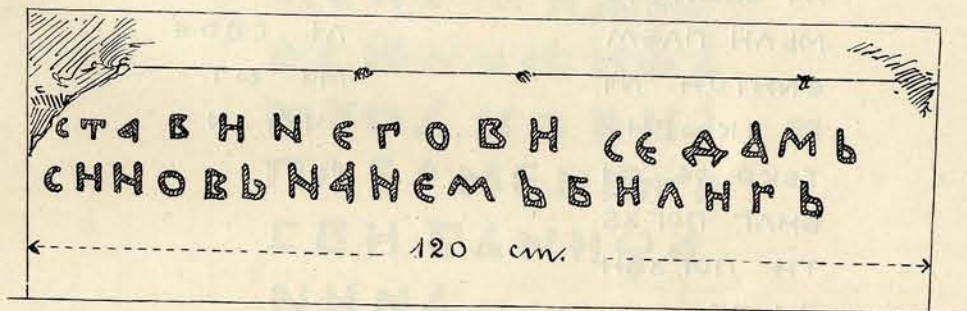 СТАВН NЕГОВН СЕДАМЬ
СННОВЬ NАНЕМЬ БНЛНГЬ
120 cm.